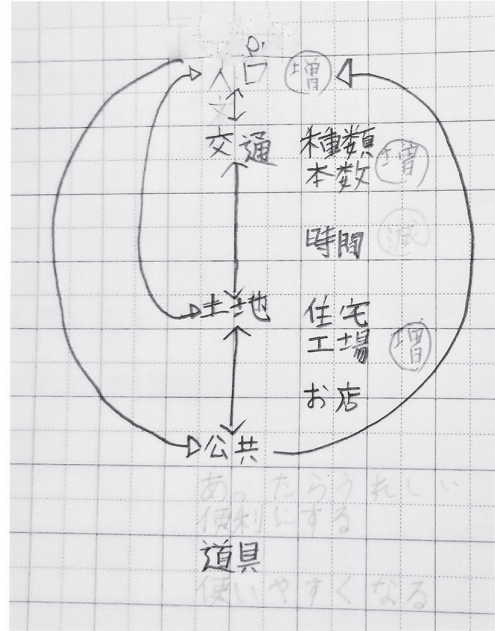 人口 増
交通 種類
本数 増
時間 減
土地 住宅
工場 増
お店
公共
あったらうれしい
便利にする
道具
使いやすくなる